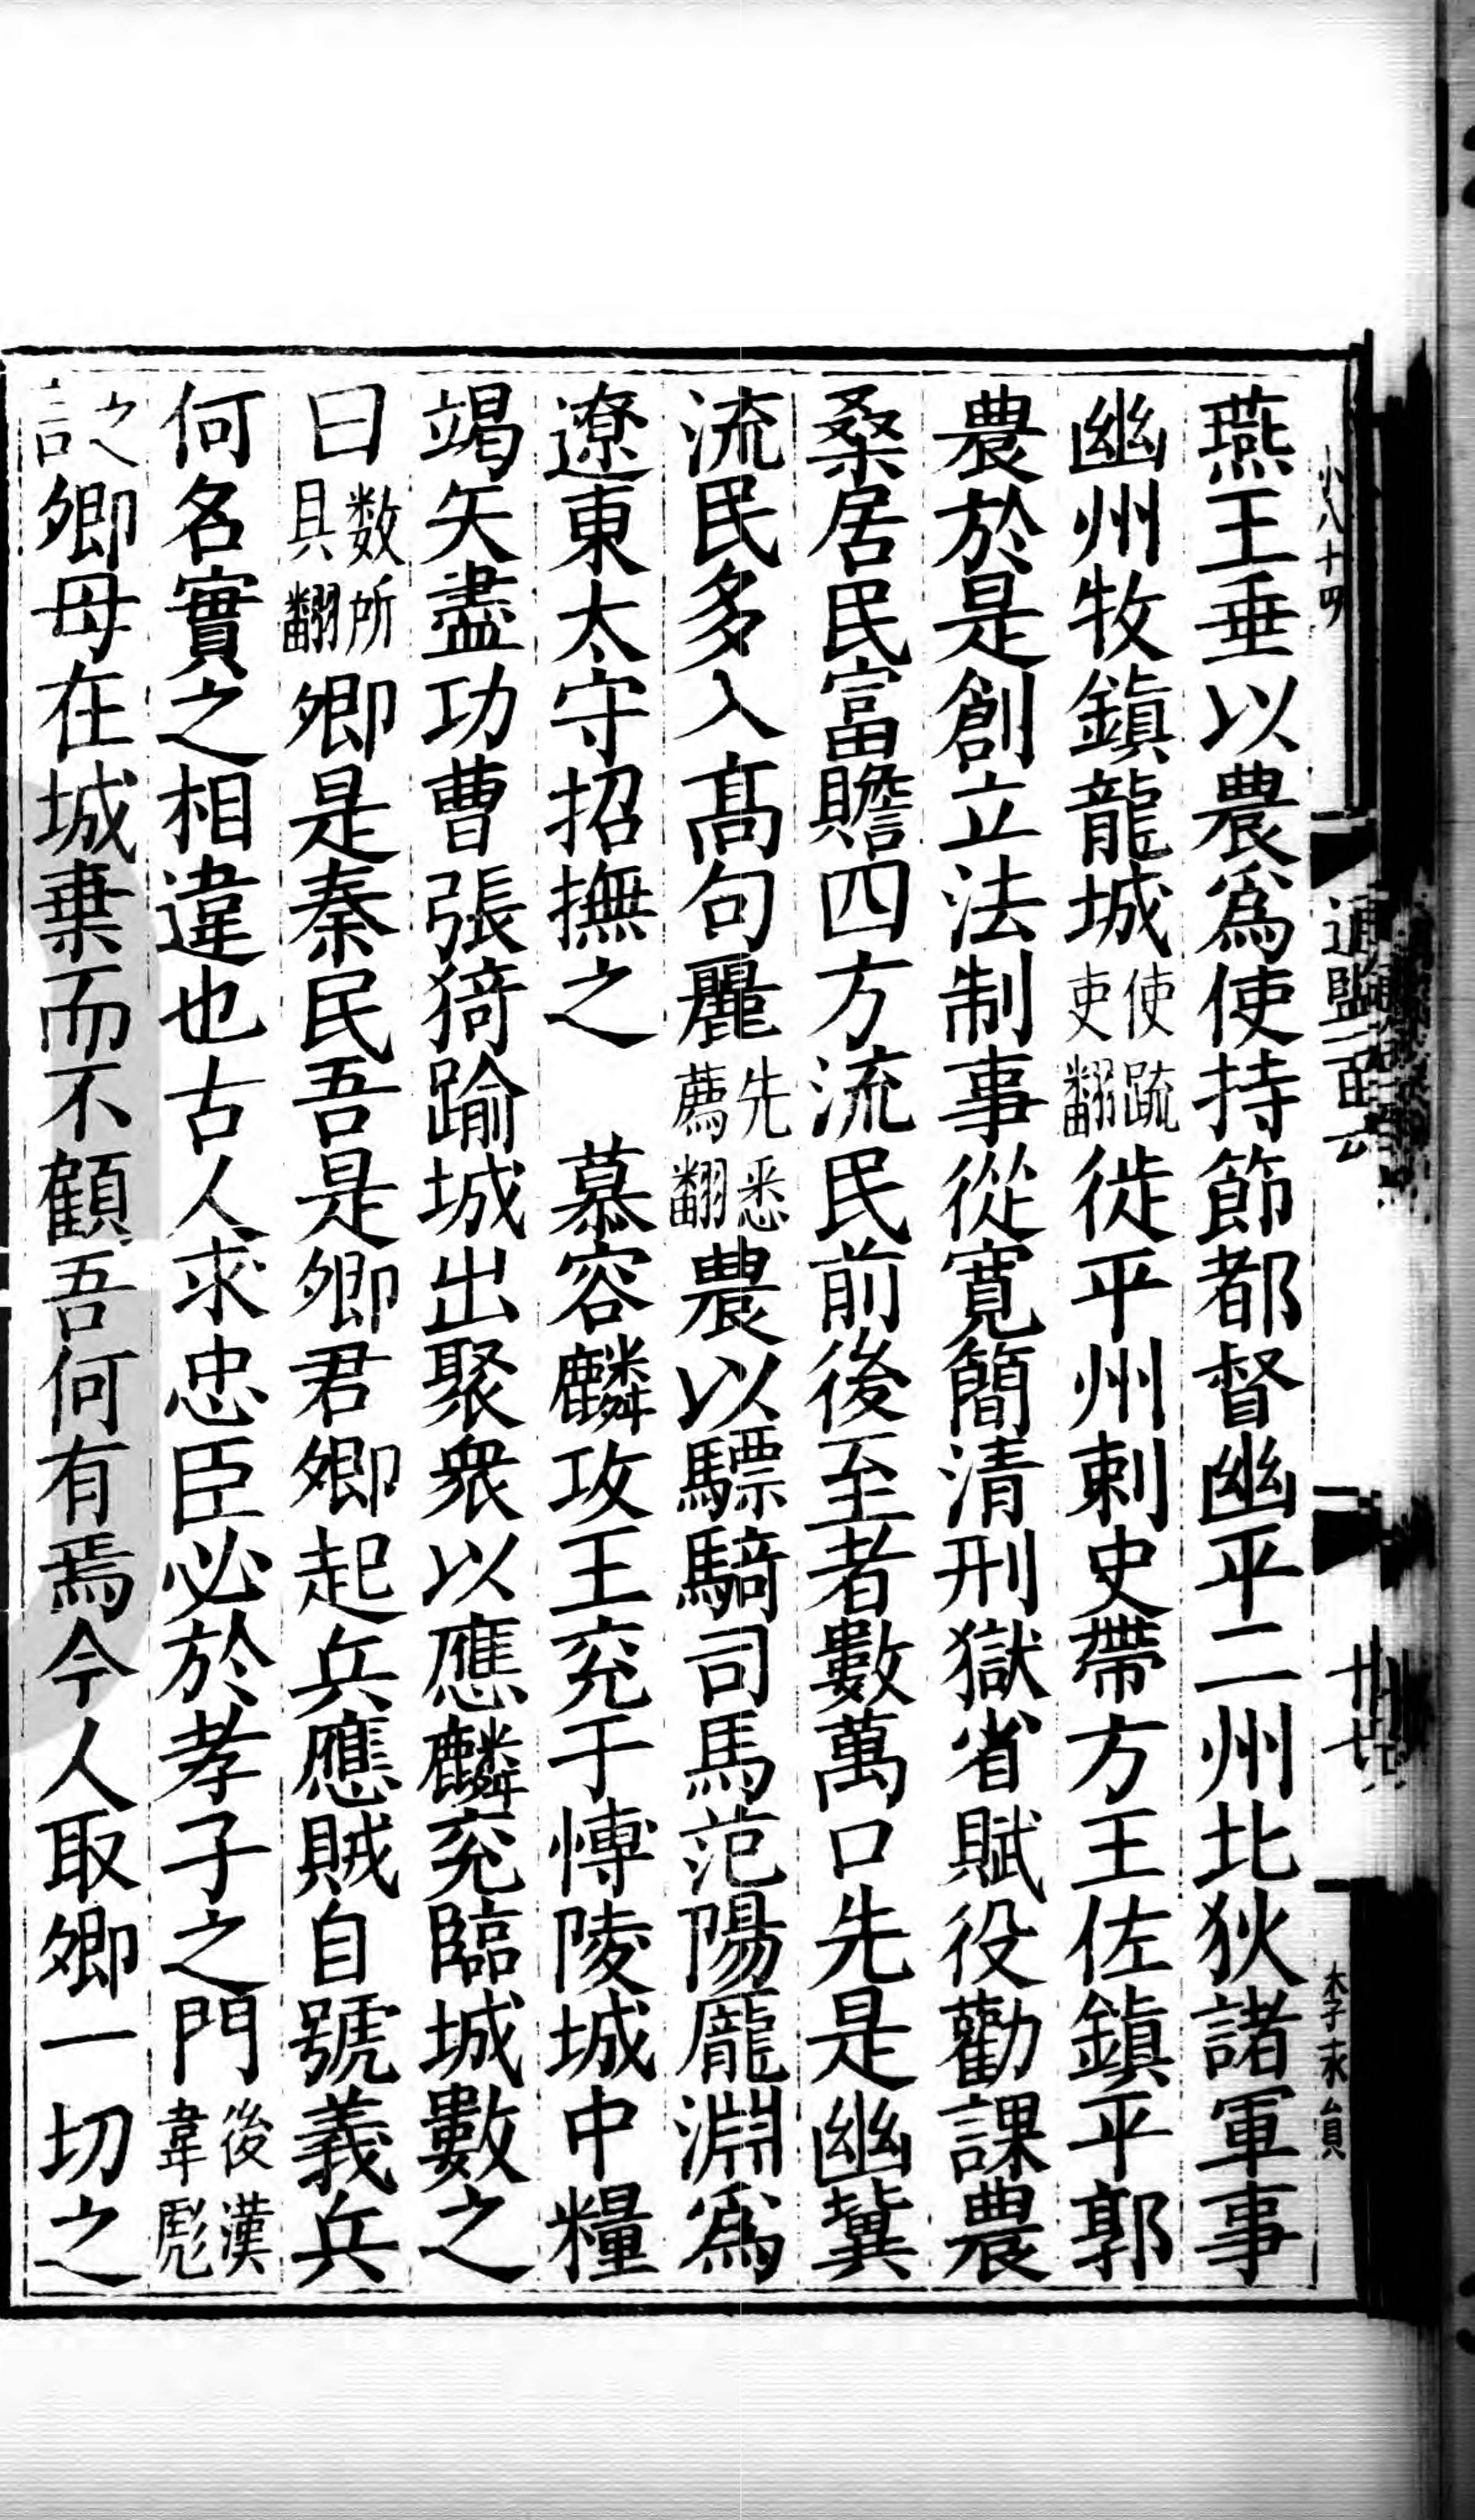 燕王垂以農爲使持節都督幽平二州北狄諸軍事
幽州牧鎮龍城使疏吏翻徙平州刺史帶方王佐鎮平郭
農於是創立法制事從寬簡清刑獄省賦役勸課農
桑居民富贍四方流民前後至者數萬口先是幽冀
流民多入髙句麗先悉薦翻農以驃騎司馬范陽龐淵爲
遼東太守招撫之　慕容麟攻王兖于愽陵城中糧
竭矢盡功曹張猗踰城出聚衆以應麟兖臨城數之
曰数所具翻卿是秦民吾是卿君卿起兵應賊自號義兵
何名實之相違也古人求忠臣必於孝子之門後漢韋彪
之言卿母在城棄而不顧吾何有焉今人取卿一切之
通鑑一百六
廿七